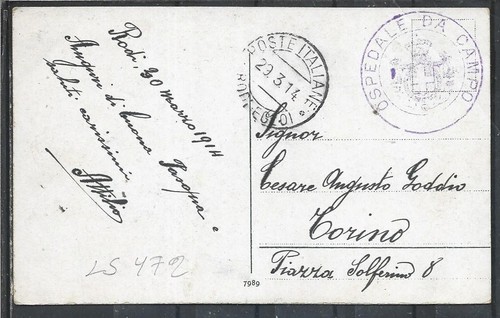 Rodi, 30 marzo 1914
Auguri di buona Pasqua e
saluti carissimi
Attilio
LS 472
POSTE ITALIANE
29.3.14
RODI (EGEO)
OSPEDALE DA CAMPO
Signor
Cesare Augusto Goddio
Torino
Piazza Solferino 8
7989